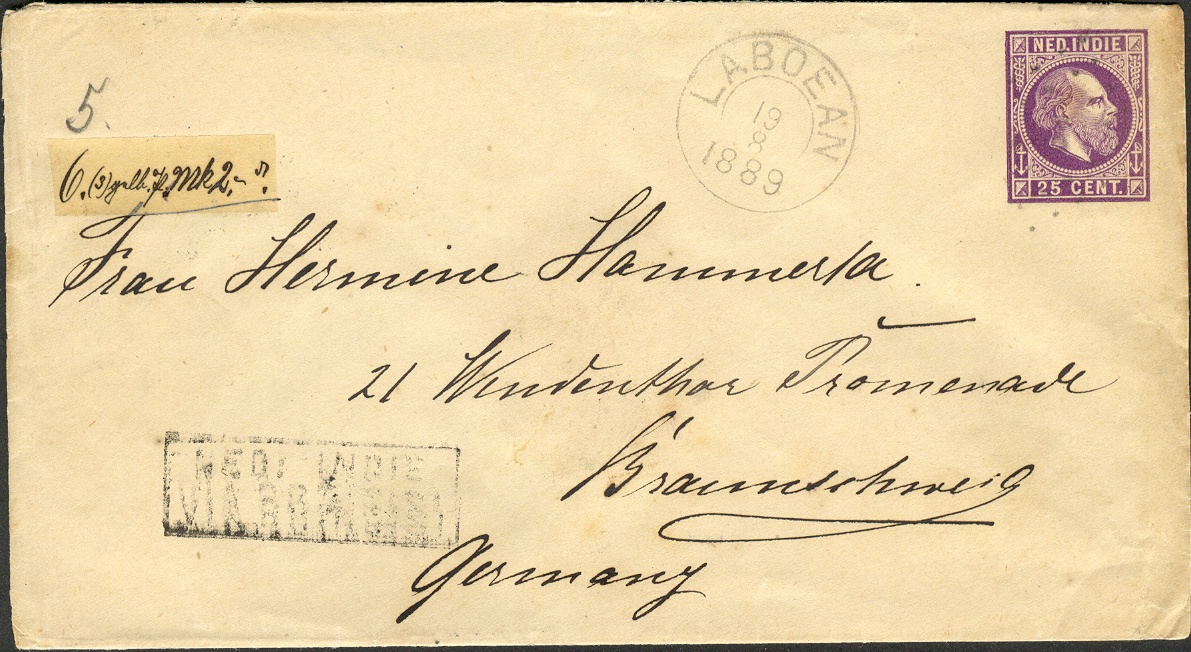 5.
6. (3) gelb. fl. Mk 2.-
LABOEAN
19
8
1889
NED. INDIE
25 CENT.
Frau Hermine Hammerla
21 Wendenthor Promenade
Braunschweig
Germany
NED: INDIE
VIA BRINDISI